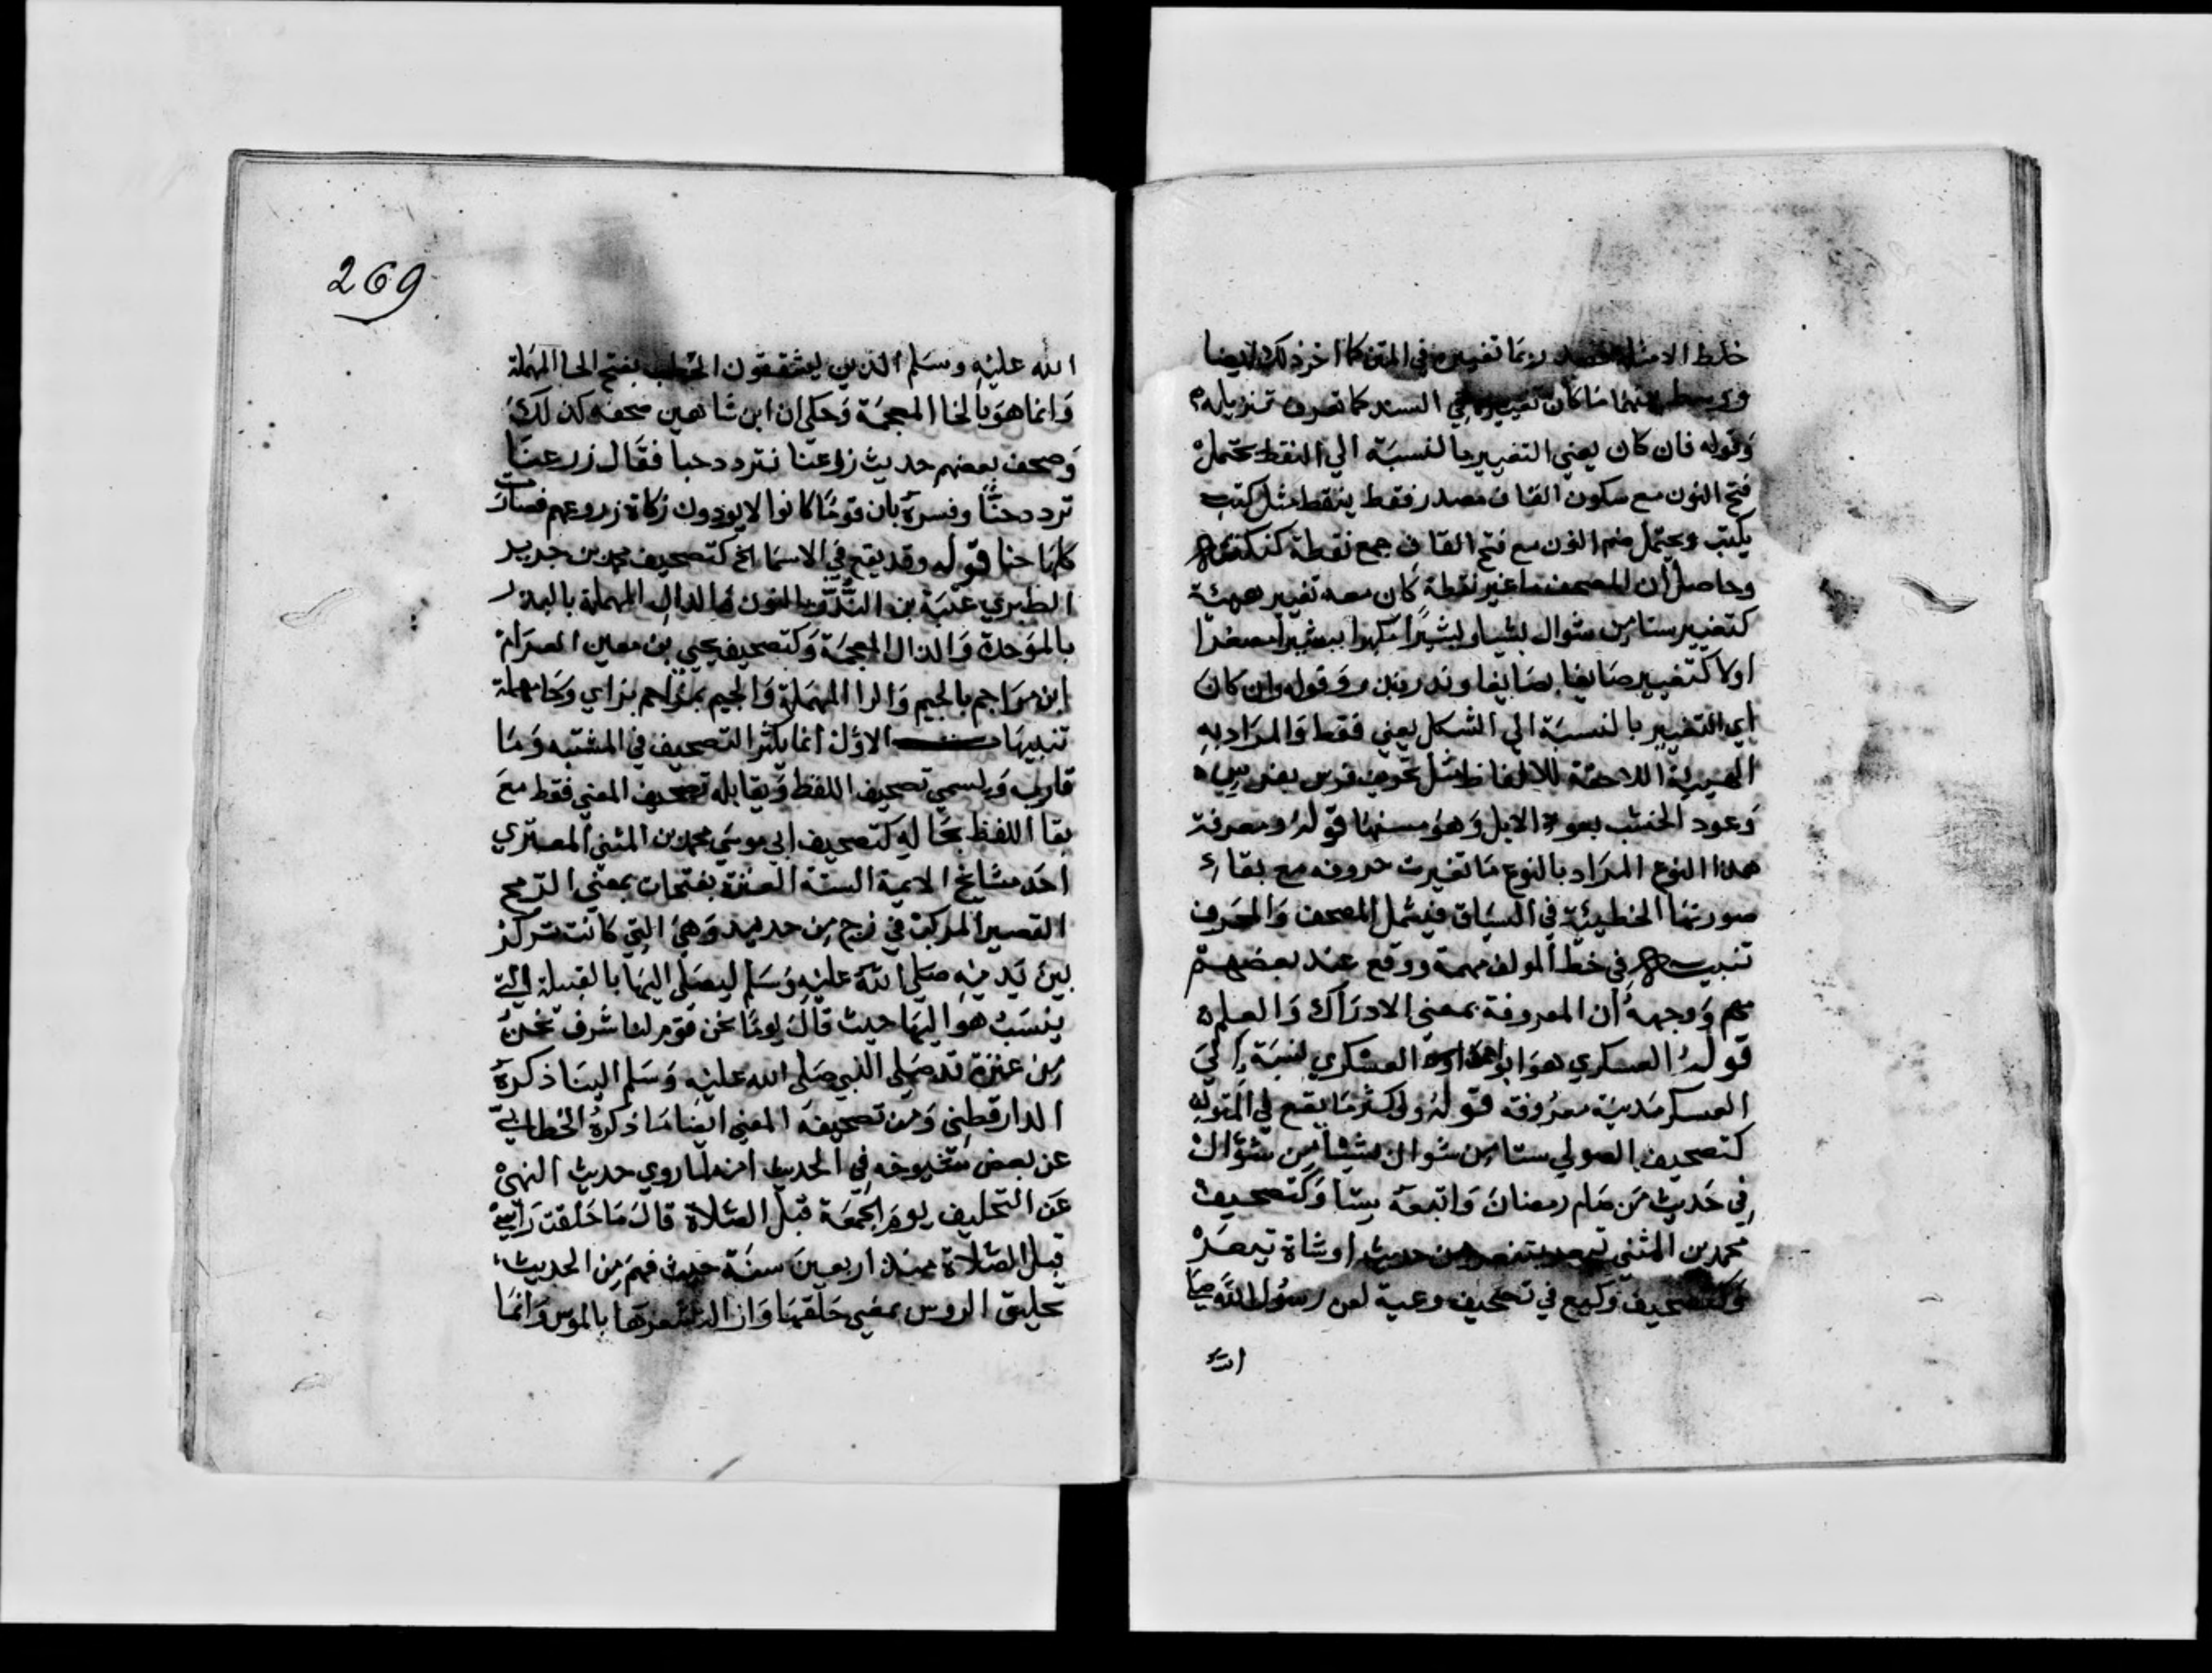 خلط الامثلة وربما تغييره في المتن كما اخر ذلك ايضا
ووسط بينهما ما كان تغييره في السند كما تعرف تنزيله
وقوله فان كان يعني التغيير بالنسبة الي النقط يحتمل
فتح النون مع سكون القاف مصدر نقط ينقط مثل كتب
يكتب ويحتمل ضم النون مع فتح القاف جمع نقطة
وحاصله ان المصحف ما غير نقطه كان معه تغيير هيئة
كتغيير ستا من شوال بشيا وبشيرا مكبرا ببشير مصغرا
اولا كتغيير صانعا بضايعا وقوله وان كان
اي التغيير بالنسبة الي الشكل يعني فقط والمراد به
الهيية اللاحقة للالفاظ مثل تحريف فرس
وعود الخشب بعود الابل وهو مسنها قوله ومعرفة
هذا النوع المراد بالنوع ما تغيرت حروفه مع بقاء
صورتها الخطيئة في السياق فيشمل المصحف والمحرف
تنبيه في خط المولف مهمة ووقع عند بعضهم
مهم ووجهه ان المعروفة بمعني الادراك والعلم
قوله العسكري هو ابو احمد العسكري نسبة الي
العسكر مدينة معروفة قوله واكثر ما يقع في المتون
كتصحيف الصولي ستا من شوال بشيئا من شوال
في حديث من صام رمضان واتبعه ستا وكتصحيف
محمد بن المثني تيعر من حديث او شاة تيعر
وكتصحيف وكيع في تصحيف وعية لعن رسول الله صلي
الله
269
الله عليه وسلم الذين يشققون الخطب بفتح الحا المهملة
وانما هو بالخا المعجمة وحكي ان ابن شاهين صحفه كذلك
وصحف بعضهم حديث زرغبا تزدد حبا فقال زرعنا
تردد حنا وفسره بان قوما كانوا لا يودون زكاة زروعهم فصارت
كلها حنا قوله وقد يقع في الاسما الخ كتصحيف محمد بن جرير
الطبري عتبة بن الندر بالنون والدال المهملة بالبذر
بالموحدة والذال المعجمة وكتصحيف يحيي بن معين العوام
ابن مراجم بالجيم والرا المهملة والجيم بمزاحم بزاي وحا مهملة
تنبيهات الاول انما يكثر التصحيف في المشتبه وما
قاربه ويسمي تصحيف اللفظ ويقابله تصحيف المعني فقط مع
بقا اللفظ بحاله كتصحيف ابي موسي محمد بن المثني المصري
احد مشايخ الايمة الستة العنزة بفتحات بمعني الرمح
القصير المركب في زج من حديد وهي التي كانت تركز
بين يديه صلي الله عليه وسلم ليصلي اليها بالقبيلة التي
ينسب هو اليها حيث قال يوما نحن قوم لنا شرف نحن
من عنزة قد صلي النبي صلي الله عليه وسلم الينا ذكره
الدارقطني ومن تصحيفه المعني ايضا ما ذكره الخطابي
عن بعض شيوخه في الحديث انه لما روي حديث النهي
عن التحليف يوم الجمعة قبل الصلاة قال ما حلقت راسي
قبل الصلاة منذ اربعين سنة حيث فهم من الحديث
تحليق الروس بمعني حلقها وازالة شعرها بالموس وانما